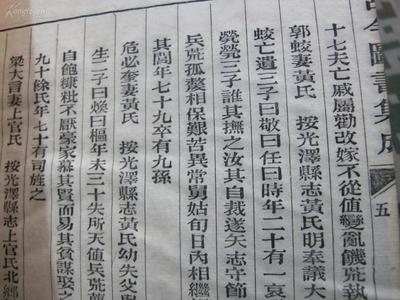 今圖書集成
五
十七夫亡戚屬勸改嫁不從值變亂饑荒執
郭蛟妻黃氏　按光澤縣志黃氏明奉議大
蛟亡遺三子曰敬曰任曰時年二十有一哀
煢煢三子誰其撫之汝其自裁遂矢志守節
兵荒孤嫠相保艱苦異常舅姑旬日內相繼
其閭年七十九卒有九孫
危必奎妻黃氏　按光澤縣志黃氏幼失父與
生二子曰煥曰樞年未三十失所天值兵荒
自飽糠粃不厭豪家慕其賢而易其貧謀娶之
九十餘氏年七十有司旌之
梁大言妻上官氏　按光澤縣志上官氏北鄉